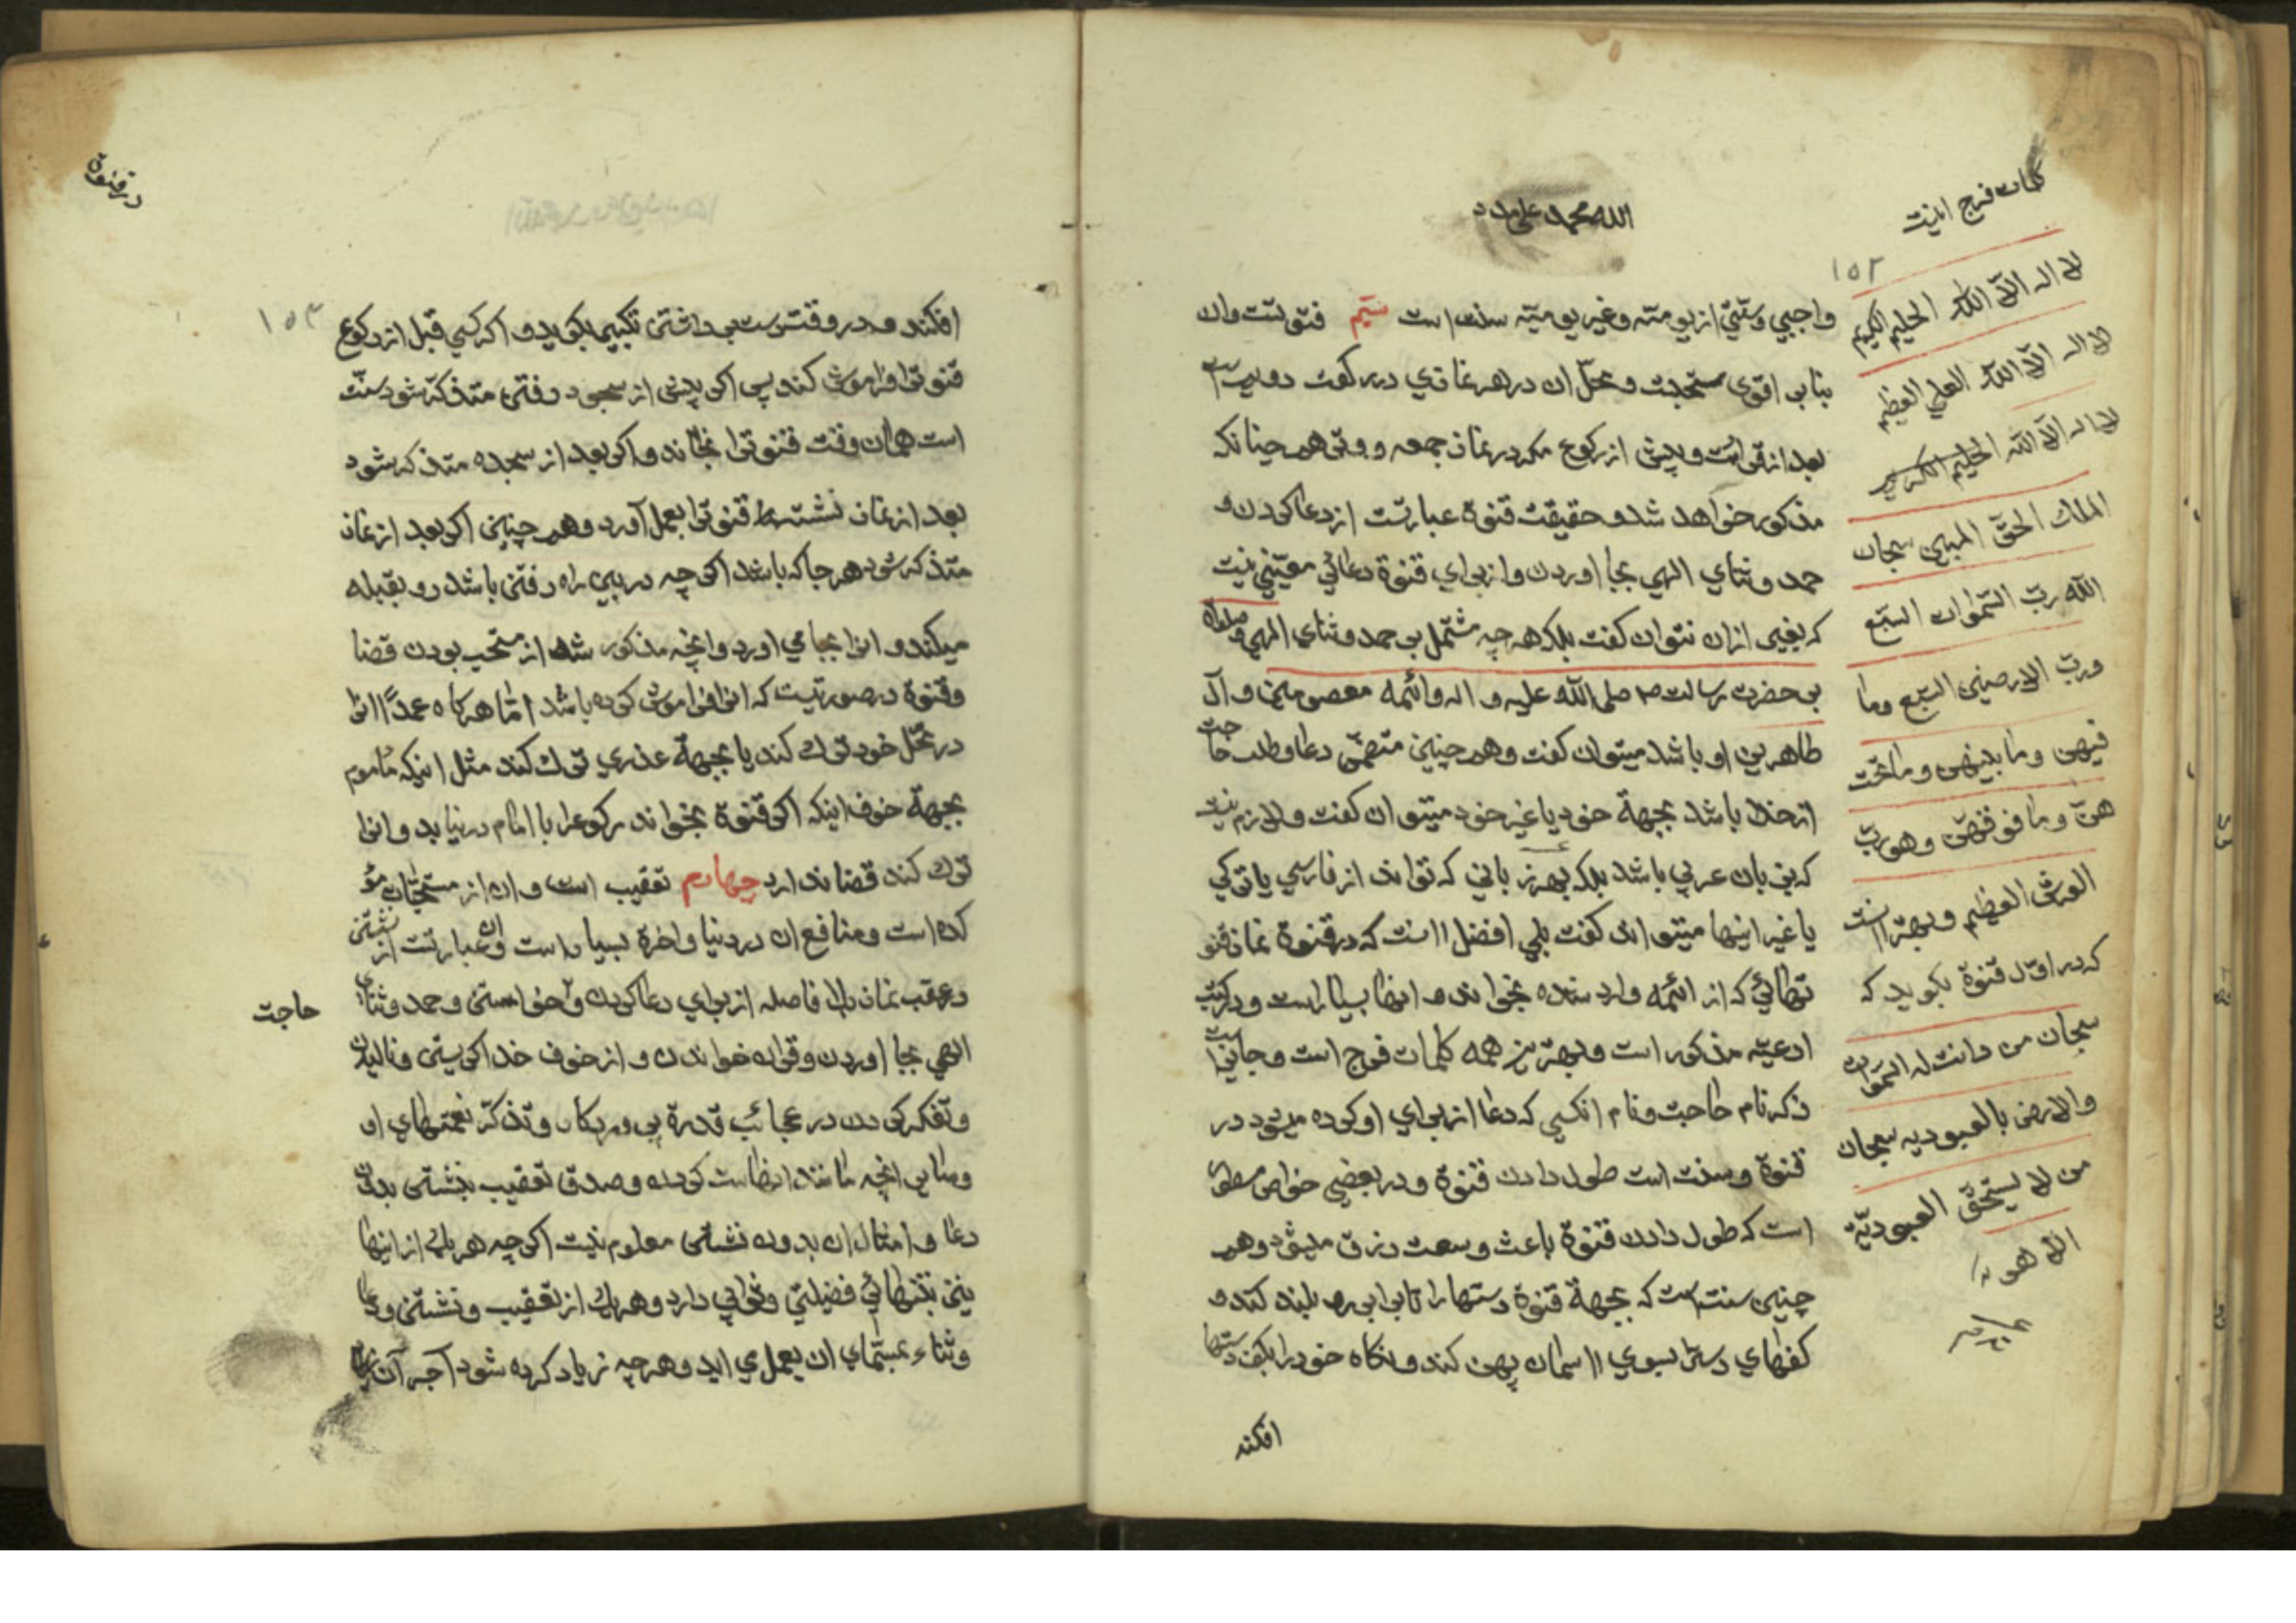 الله محمد علی مدد
۱۵۲
واجبي وسنتي از يوميّه وغير يوميّه سنت است سيّم قنوتست وان
بنابر اقوی مستحبست ومحلّ ان در هر نمازي در ركعت دويم است
بعد از قرائت وپيش از ركوع مكر در نماز جمعه ووتر هم چنانكه
مذكور خواهد شد وحقيقت قنوة عبارتست از دعا كردن و
حمد وثناي الهي بجا اوردن واز براي قنوة دعائي معيّني نيست
كه بغير از ان نتوان كفت بلكه هر چه مشتمل بر حمد وثناى الهي وصلواة
بر حضرت رسالت صلى الله عليه واله وائمه معصومين وآل
طاهرين او باشد ميتوان كفت وهم چنين متضمّن دعا وطلب حاجت
از خدا باشد بجهة خود يا غير خود ميتوان كفت ولازم نيست
كه بزبان عربي باشد بلكه بهر زباني كه تواند از فارسي يا تركي
يا غير اينها ميتواند كفت بلي افضل اانست كه در قنوة نماز قنو
تهائي كه از ائمه وارد شده بخواند و انها بسيار است ودر كتب
ادعيّه مذكور است وبهترين همه كلمات فرج است وجايزاست
ذكر نام حاجت ونام انكسي كه دعا از براي او كرده ميشود در
قنوة وسنت است طول دادن قنوة ودر بعضي خواص مسطور
است كه طول دادن قنوة باعث وسعت رزق ميشود وهم
چنين سنت است كه بجهة قنوة دستها را تا برابر رو بلند كند و
كفهاي دسترا بسوي ااسمان پهن كند ونكاه خود را بكف دستها
افكند
كلمات فرج اينست
لا اله الّا الله الحليم الكريم
لا اله الّا الله العلي العظيم
لا اله الّا الله الحليم الكريم
الملك الحقّ المبين سبحان
الله ربّ السّموات السّبع
وربّ الارضين السّبع وما
فيهن وما بينهن وما تحت
هنّ وما فوقهنّ وهو ربّ
العرش العظيم وبهتر اانست
كه در اوّل قنوة بكويد كه
سبحان من دانت له السّموات
والارض بالعبوديه سبحان
من لا يستحقّ العبوديّة
الّا هو
در قنوة
۱۵۳
افكند و در وقت دست برداشتن تكبير بكويد و اكر كسي قبل از ركوع
قنوترا فراموش كند پس اكر پيش از سجود رفتن متذكّر شود سنّت
است همان وقت قنوترا بخاند و اكر بعد از سجده متذكر شود
بعد از نماز نشسته قنوترا بعمل آورد وهم چنين اكر بعد از نماز
متذكر شود هر جا كه باشد اكر چه در بين راه رفتن باشد رو بقبله
ميكند و انرا بجا مي اورد وانچه مذكور شد از مستحب بودن قضا
وقنوة در صورتيست كه انرا فراموش كرده باشد امّا هر كاه عمدًا انرا
در محّل خود ترك كند يا بجهة عذري ترك كند مثل اينكه ماموم
بجهة خوف اينكه اكر قنوة بخواند ركوعرا با امام در نيابد و انرا
ترك كند قضا ندارد چهارم تعقيب است و ان از مستحبّات مؤ
كده است ومنافع ان در دنيا واخرة بسيار است وان عبارتست از نشستن
در عقب نماز بلا فاصله از براي دعا كردن وخواستن وحمد وثناي
حاجت
الهي بجا اوردن وقران خواندن و از خوف خدا كريستن وناليدن
وتفكر كردن در عجائب قدرة پروردكار وتذكّر نعمتهاي او
وساير انچه مانند اينهاست كردن وصدق تعقيب بنشستن بدون
دعا و امثال ان بدون نشستن معلوم نيست اكر چه هر يك از اينها
نيز بتنهائي فضيلتي وثوابي دارد وهر يك از تعقيب ونشستن ودعا
وثناء بمسمّاي ان بعمل مي ايد وهر چه زياد كرده شود اجر آن